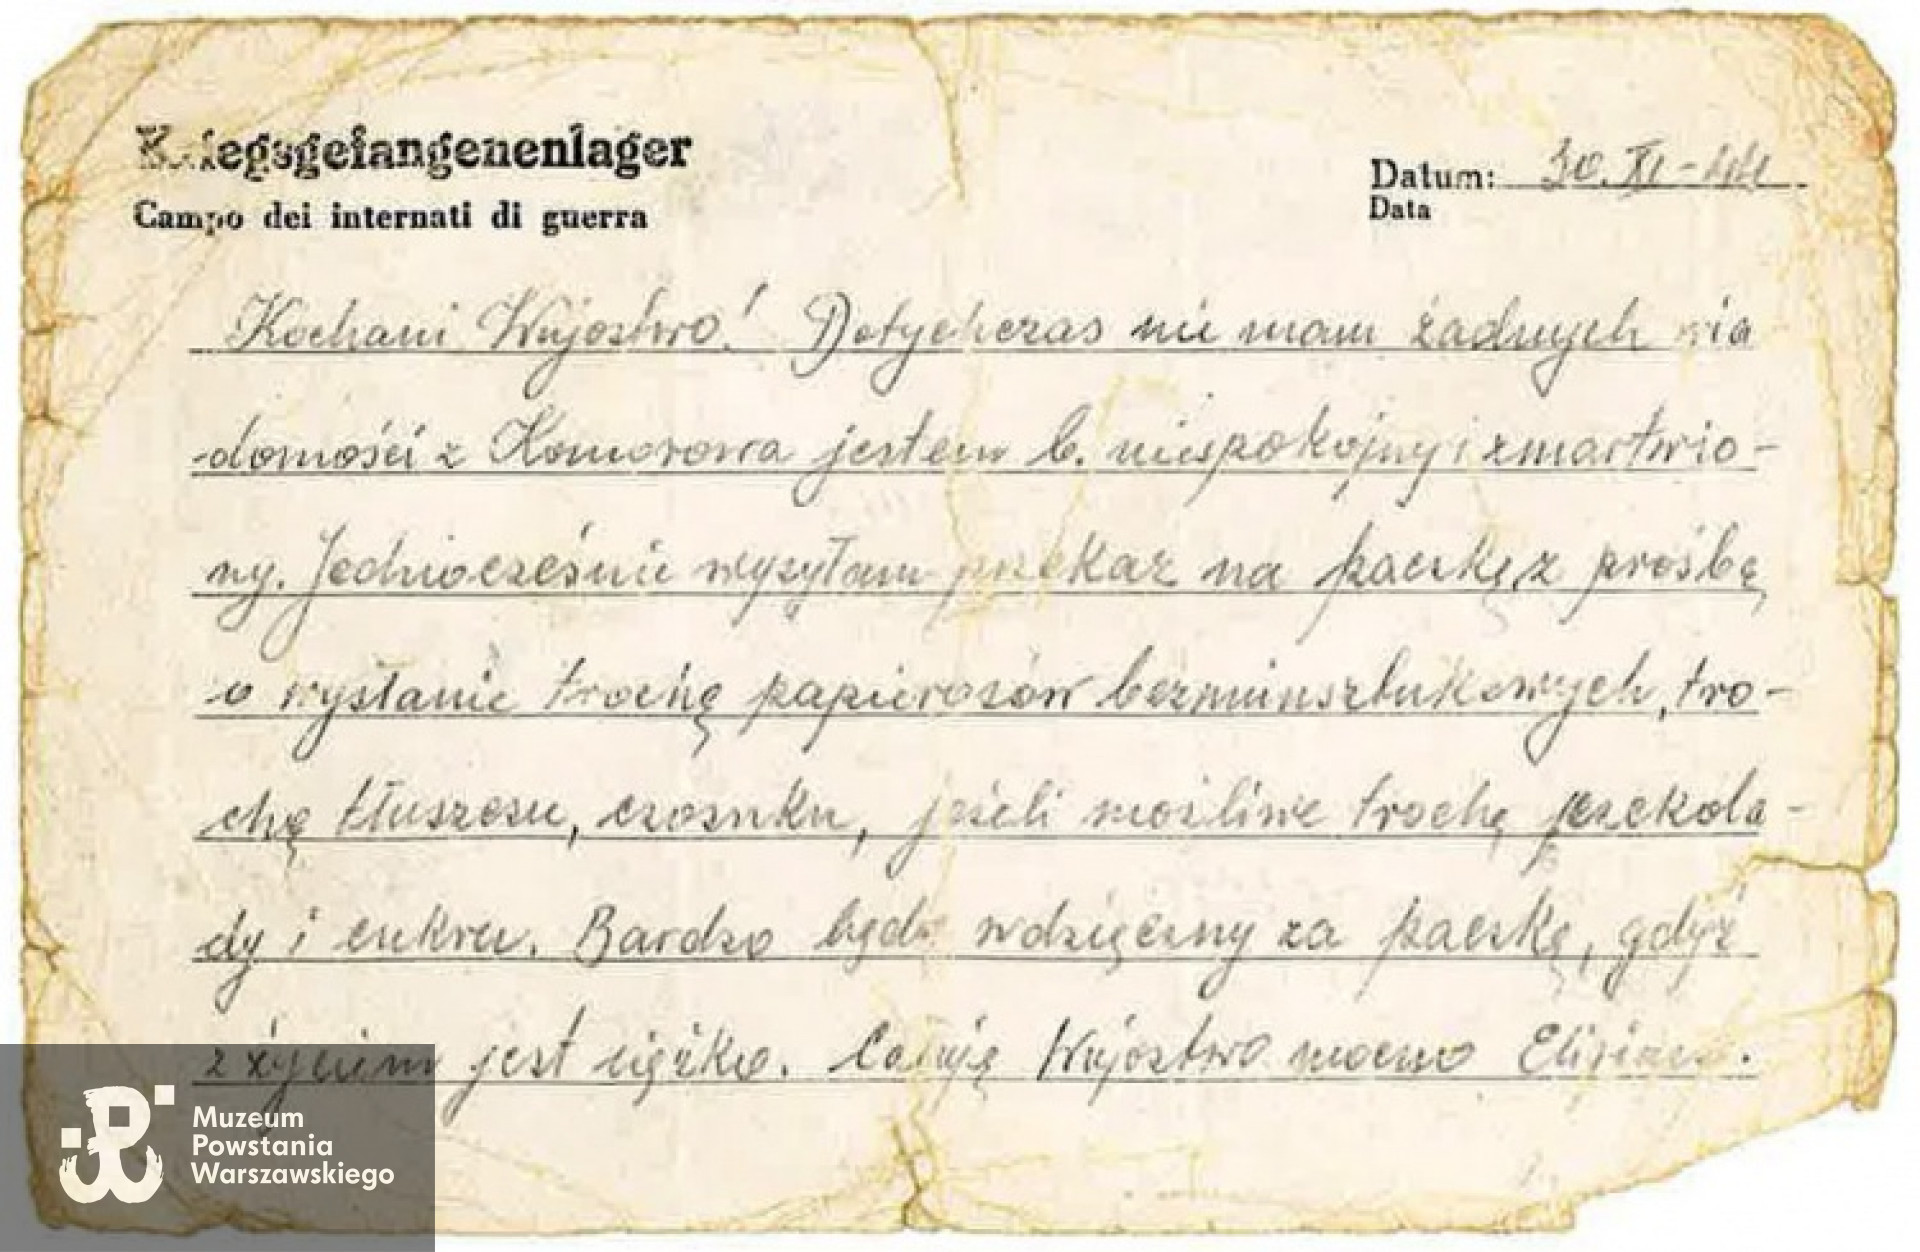 Kriegsgefangenenlager
Campo dei internati di guerra
Datum: 30. XI - 44
Data
Kochani Wujostwo! Dotychczas nie mam żadnych wia
domości z Komorowa jestem b. niespokojny i zmartwio-
ny. Jednocześnie wysyłam przekaz na paczkę z prośbą
o wysłanie trochę papierosów bezmunsztukowych, tro-
chę tłuszczu, czosnku, jeżeli możliwe trochę czekola-
dy i cukru. Bardzo będę wdzięczny za paczkę, gdyż
z życiem jest ciężko. Całuję Wujostwo mocno
Muzeum
Powstania
Warszawskiego